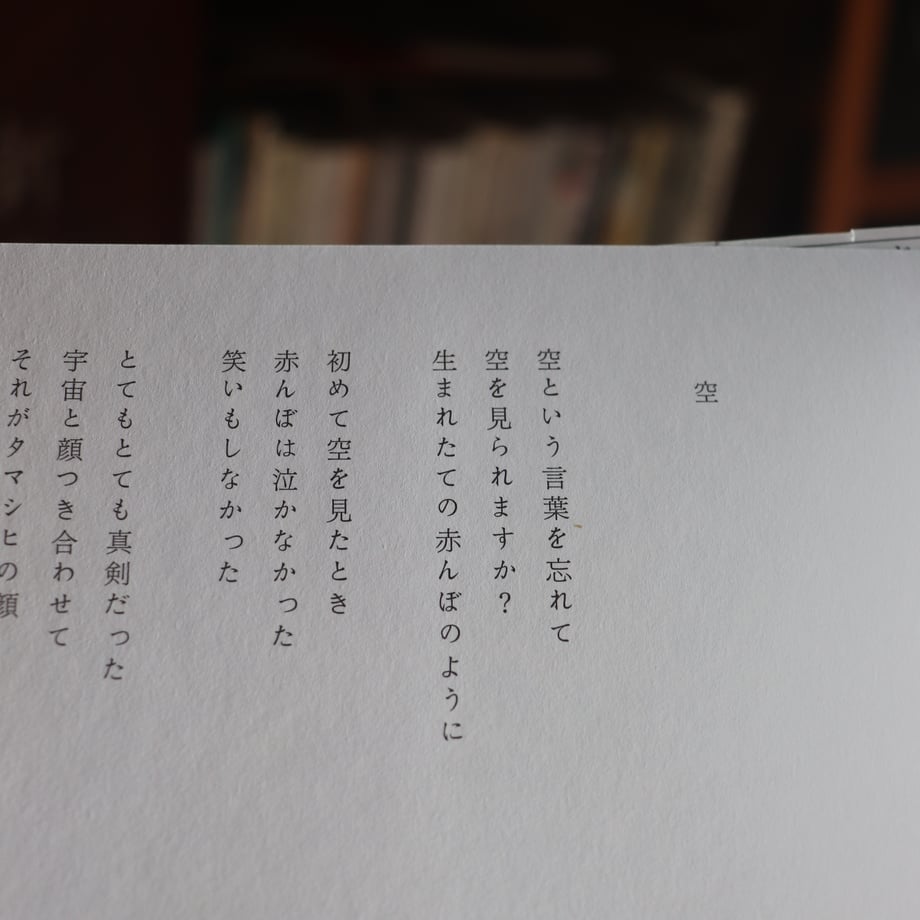 空
空という言葉を忘れて
空を見られますか？
生まれたての赤んぼのように
初めて空を見たとき
赤んぼは泣かなかった
笑いもしなかった
とてもとても真剣だった
宇宙と顔つき合わせて
それがタマシヒの顔